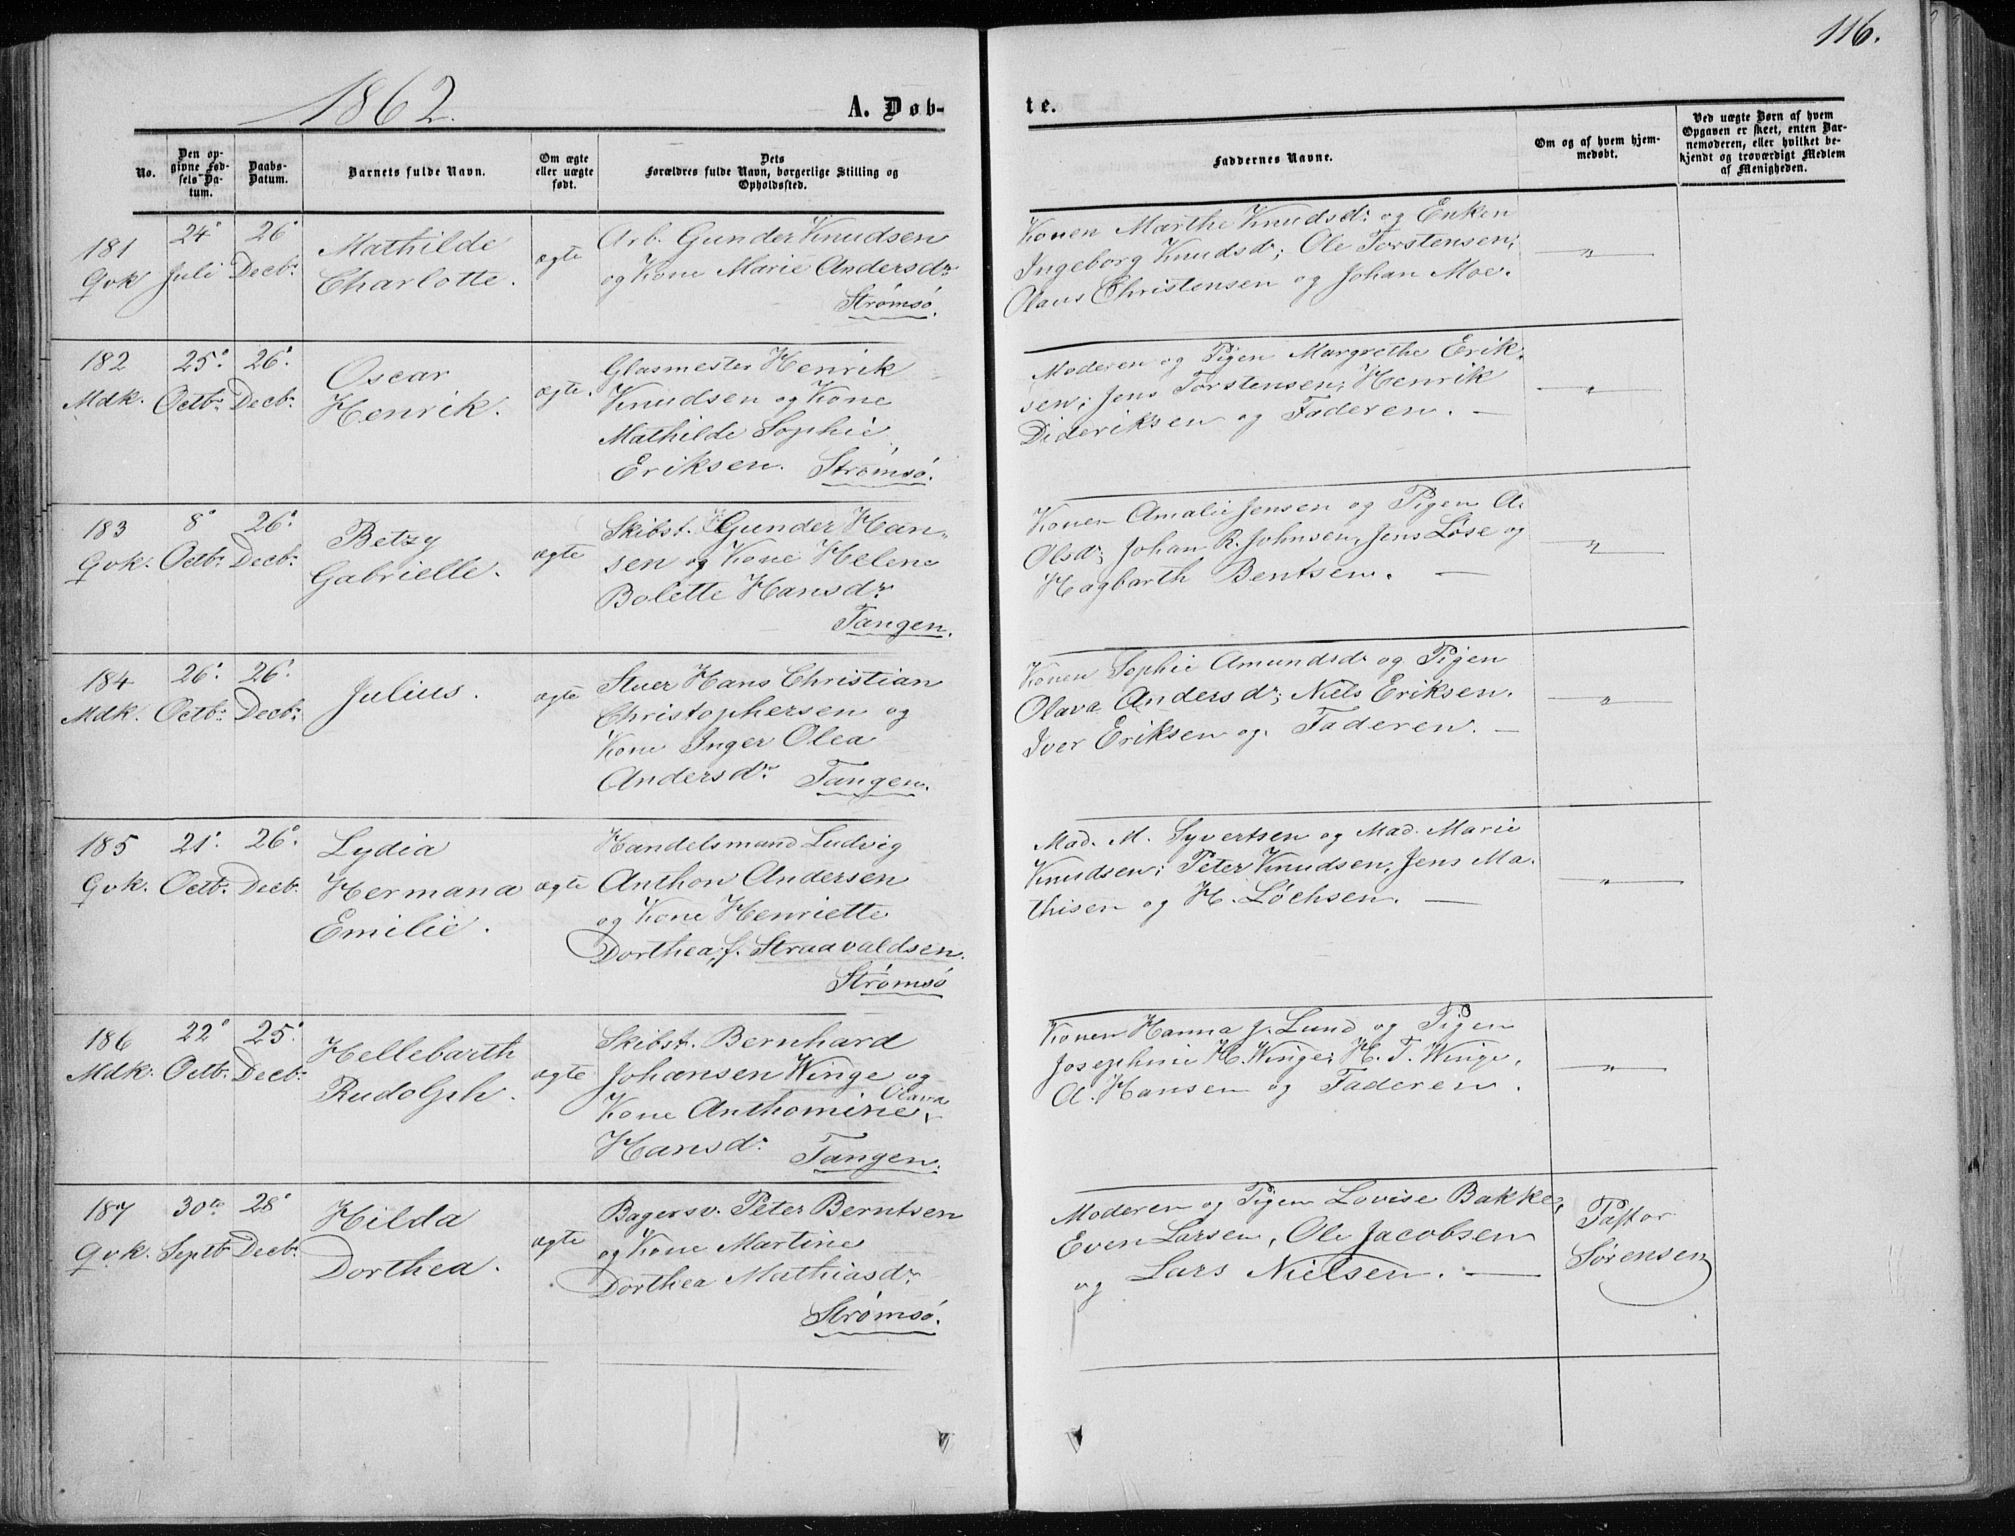 116.
1862.
A. Døb-
te.
No.
Den op-
givne Fød-
sels Da-
tum.
Daabs-
Datum.
Barnets fulde Navn.
Om ægte
eller uægte
født.
Dets
Forældres fulde Navn, borgerlige Stilling og
Opholdssted.
Faddernes Navne.
Om og af hvem hjem-
medøbt.
Ved uægte Børn af hvem
Opgaven er skeet, enten Bar-
nemoderen, eller hvilket be-
kjendt og troværdigt Medlem
af Menigheden.
181
Qvk
24°
Juli
26
Decbr.
Mathilde
Charlotte.
ægte
Arb. Gunder Knudsen
og Kone Marie Andersdr.
Strømsø.
Konen Marthe Knudsdr. og Enken
Ingeborg Knudsdr; Ole Torstensen;
Olaus Christensen og Johan Moe.
"
182
Mdk.
25°
Octbr.
26.
Decbr.
Oscar
Henrik.
ægte.
Glasmester Henrik
Knudsen og Kone
Mathilde Sophie
Eriksen. Strømsø.
Moderen og Pigen Margrethe Erik-
sen; Jens Torstensen; Henrik
Dideriksen og Faderen. —
"
183
Qvk.
8°
Octbr.
26.
Decbr.
Betzy
Gabrielle.
ægte
Skibst. Gunder Han-
sen og Kone Helene
Bolette Hansdr.
Tangen.
Konen Amalie Jensen og Pigen A.
Olsdr; Johan R. Johnsen, Jens Løse og
Hagbarth Bentsen. —
"
184
Mdk.
26.
Octbr.
26.
Decbr.
Julius.
ægte
Stuer Hans Christian
Christophersen og
Kone Inger Olea
Andersdr. Tangen.
Konen Sophie Amundsdr. og Pigen
Olava Andersdr; Niels Eriksen.
Iver Eriksen og Faderen. —
"
185
Qvk.
21.
Octbr.
26°
Decbr.
Lydia
Hermana
Emilie.
ægte
Handelsmand Ludvig
Anthon Andersen
og Kone Henriette
Dorthea f. Straavaldsen.
Strømsø
Mad. M. Syvertsen og Mad. Marie
Knudsen; Peter Knudsen, Jens Ma-
thisen og H. Löchsen. —
"
186
Mdk.
22°
Octbr.
25.
Decbr.
Hellebarth
Rudolph.
ægte
Skibst. Bernhard
Johansen Winge og
Olava
Kone Anthomine
Hansdr. Tangen.
Konen Hanna J. Lund og Pigen
Josephine H. Winge; H. T. Winge,
A. Hansen og Faderen.
"
187
Qvk.
30te
Septbr.
28°
Decbr.
Hilda
Dorthea.
ægte
Bagersv. Peter Berntsen
og Kone Martine
Dorthea Mathiasdr.
Strømsø.
Moderen og Pigen Lovise Bakke,
Even Larsen, Ole Jacobsen
og Lars Nielsen. —
Pastor
Sørensen